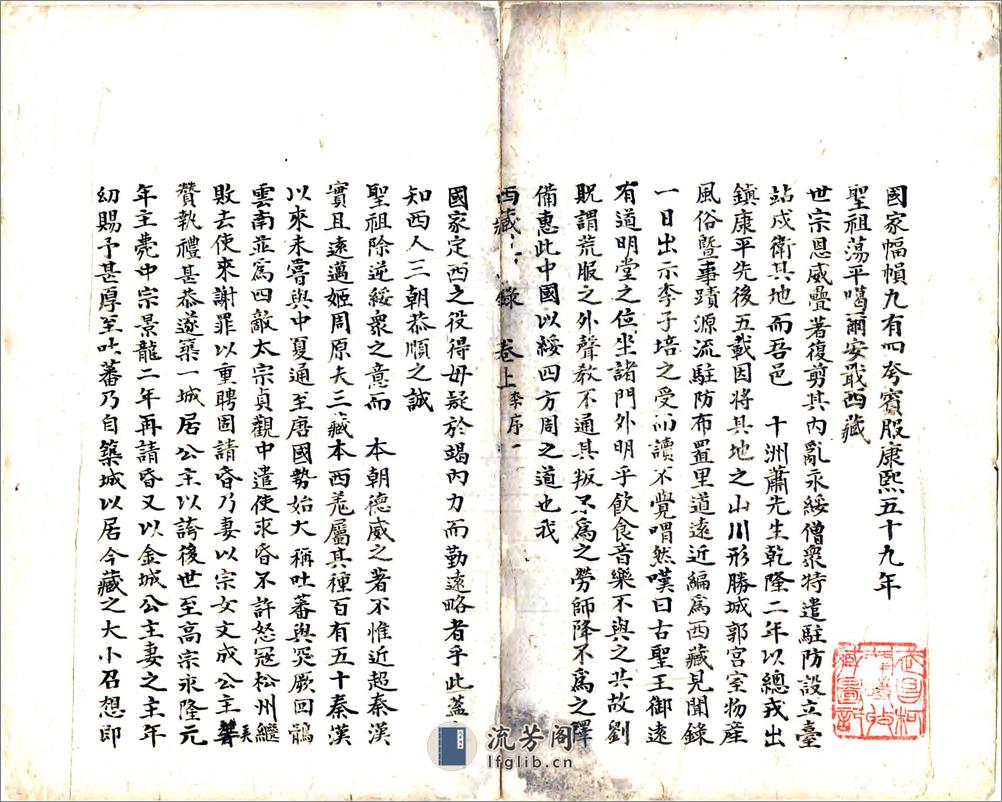 國家幅幀九有四夸賓服康熙五十九年
聖祖蕩平噶爾安戢西藏
世宗恩威疊著復剪其內亂永綏僧衆特遣駐防設立臺
站戍衛其地而吾邑 十洲蕭先生乾隆二年以總戎出
鎮康平先後五載因將其地之山川形勝城郭宮室物產
風俗曁事蹟源流駐防布置里道遠近編爲西藏見聞錄
一日出示李子培之受而讀不覺喟然嘆曰古聖王御遠
有道明堂之位坐諸門外明乎飲食音樂不與之共故劉
貺謂荒服之外聲教不通其叛不爲之勞師降不爲之釋
備惠此中國以綏四方周之道也我
西藏 錄 卷上 李序 一
國家定西之役得毋疑於竭內力而勤遠略者乎此蓋
知西人三朝恭順之誠
聖祖除逆綏衆之意而 本朝德威之著不惟近超秦漢
實且遠邁姬周原夫三藏本西羌屬其種百有五十秦漢
以來未嘗與中夏通至唐國勢始大稱吐蕃與突厥回鶻
雲南並爲四敵太宗貞觀中遣使求昏不許怒冦松州繼
敗去使來謝罪以重聘固請昏乃妻以宗女文成公主弄
贊執禮甚恭遂築一城居公主以誇後世至高宗永隆元
年主薨中宗景龍二年再請昏又以金城公主妻之主年
幼賜予甚厚至吐蕃乃自築城以居今藏之大小召想即
流芳阁
lfglib.cn